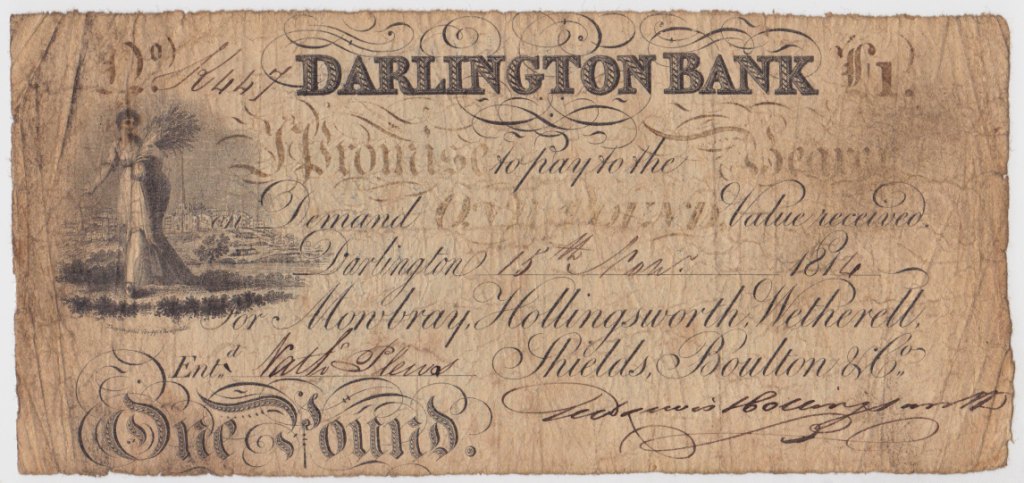 No. K447 DARLINGTON BANK £1.
I Promise to pay to the Bearer
on Demand ONE POUND Value received.
Darlington 15th Novr. 1814
For Mowbray, Hollingsworth, Wetherell,
Entd. Nath Plews Shields, Boulton & Co.
Hollingsworth
One Pound.